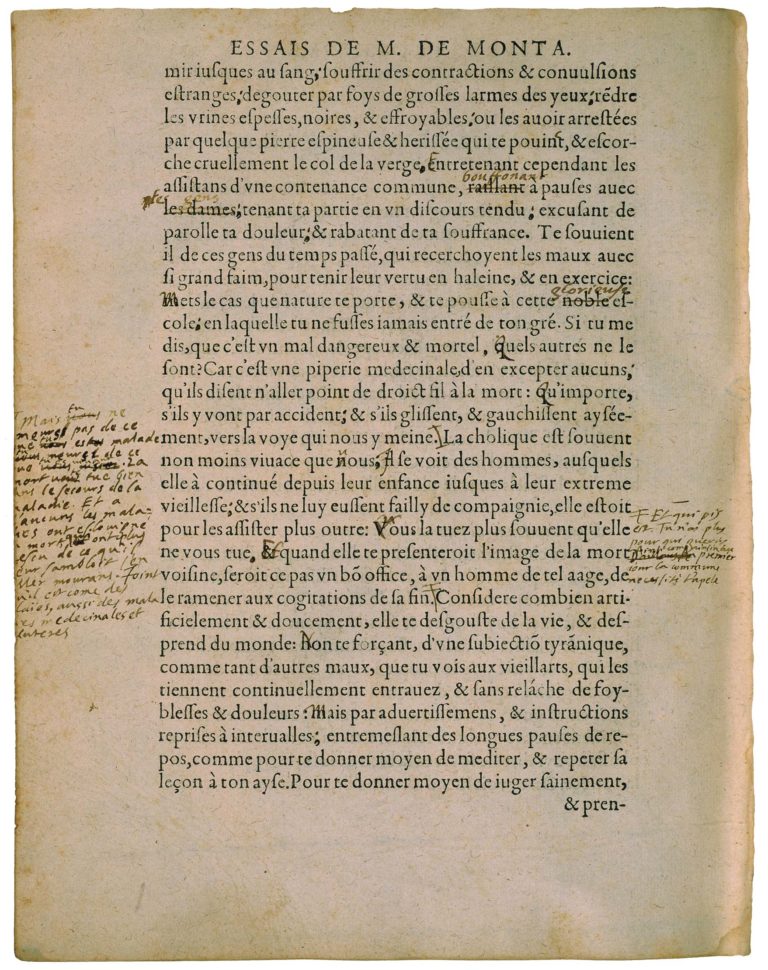 ESSAIS DE M. DE MONTA.
mir iuſques au ſang, ſouffrir des contractions & conuulſions
eſtranges, degouter par foys de groſſes larmes des yeux, rẽdre
les vrines eſpeſſes, noires, & effroyables, ou les auoir arreſtées
par quelque pierre eſpineuſe & heriſſée qui te pouint, & eſcor-
che cruellement le col de la verge, Entretenant cependant les
bouffonant
aſſiſtans d'vne contenance commune, raillant à pauses auec
tes gens
les dames; tenant ta partie en vn diſcours tendu; excuſant de
parolle ta douleur, & rabatant de ta ſouffrance. Te ſouuient
il de ces gens du temps paſſé, qui recerchoyent les maux auec
ſi grand faim, pour tenir leur vertu en haleine, & en exercice:
glorieuse
Mets le cas que nature te porte, & te pouſſe à cette noble eſ-
cole, en laquelle tu ne fuſſes iamais entré de ton gré. Si tu me
dis, que c'eſt vn mal dangereux & mortel, quels autres ne le
ſont? Car c'eſt vne piperie medecinale, d'en excepter aucuns,
qu'ils diſent n'aller point de droict fil à la mort: qu'importe,
s'ils y vont par accident, & s'ils gliſſent, & gauchiſſent ayſée-
ment, vers la voye qui nous y meine. La cholique eſt ſouuent
non moins viuace que nous; Il ſe voit des hommes, auſquels
elle à continué depuis leur enfance iuſques à leur extreme
vieilleſſe; & s'ils ne luy euſſent failly de compaignie, elle eſtoit
pour les aſſiſter plus outre: Vous la tuez plus ſouuent qu'elle
ne vous tue, & quand elle te preſenteroit l'image de la mort
voiſine, ſeroit ce pas vn bõ office, à vn homme de tel aage, de
le ramener aux cogitations de ſa fin. Conſidere combien arti-
ficielement & doucement, elle te deſgouſte de la vie, & deſ-
prend du monde: Non te forçant, d'vne ſubiectiõ tyrãnique,
comme tant d'autres maux, que tu vois aux vieillarts, qui les
tiennent continuellement entrauez, & ſans relâche de foy-
bleſſes & douleurs: Mais par aduertiſſemens, & inſtructions
repriſes à interualles; entremeſlant des longues pauſes de re-
pos, comme pour te donner moyen de mediter, & repeter ſa
leçon à ton ayſe. Pour te donner moyen de iuger ſainement,
& pren-
Mais tu ne
meurs pas de ce
que tu es malade
tu meurs de ce
que tu es . La
mort tue bien
sans le secours de la
maladie. Et a
aucuns les mala-
dies ont esloigne
la mort qui ont plus
de ce qu'il
leur sambloit s'en
aler mourans.
qu'il est come des
plaies, aussi des mala
dies medecinales et
saluteres
Et qui pis
est Tu n'as plus
pour qui guerir
premier
jour la commune
necessité t'apele